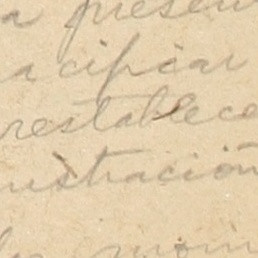 a presen
acificar
restablece
nistración